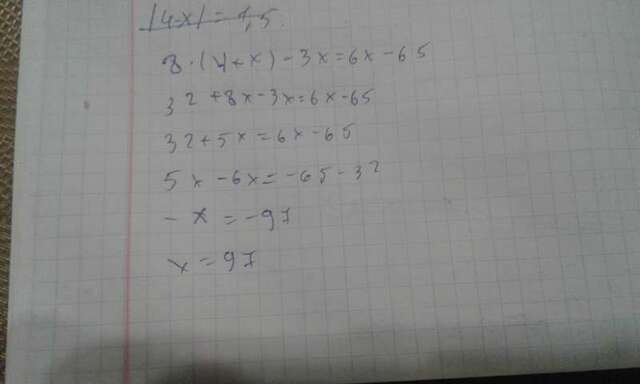 |4-x| = 1,5.
8·(4+x)-3x=6x-65
32+8x-3x=6x-65
32+5x=6x-65
5x-6x=-65-32
-x=-97
x=97